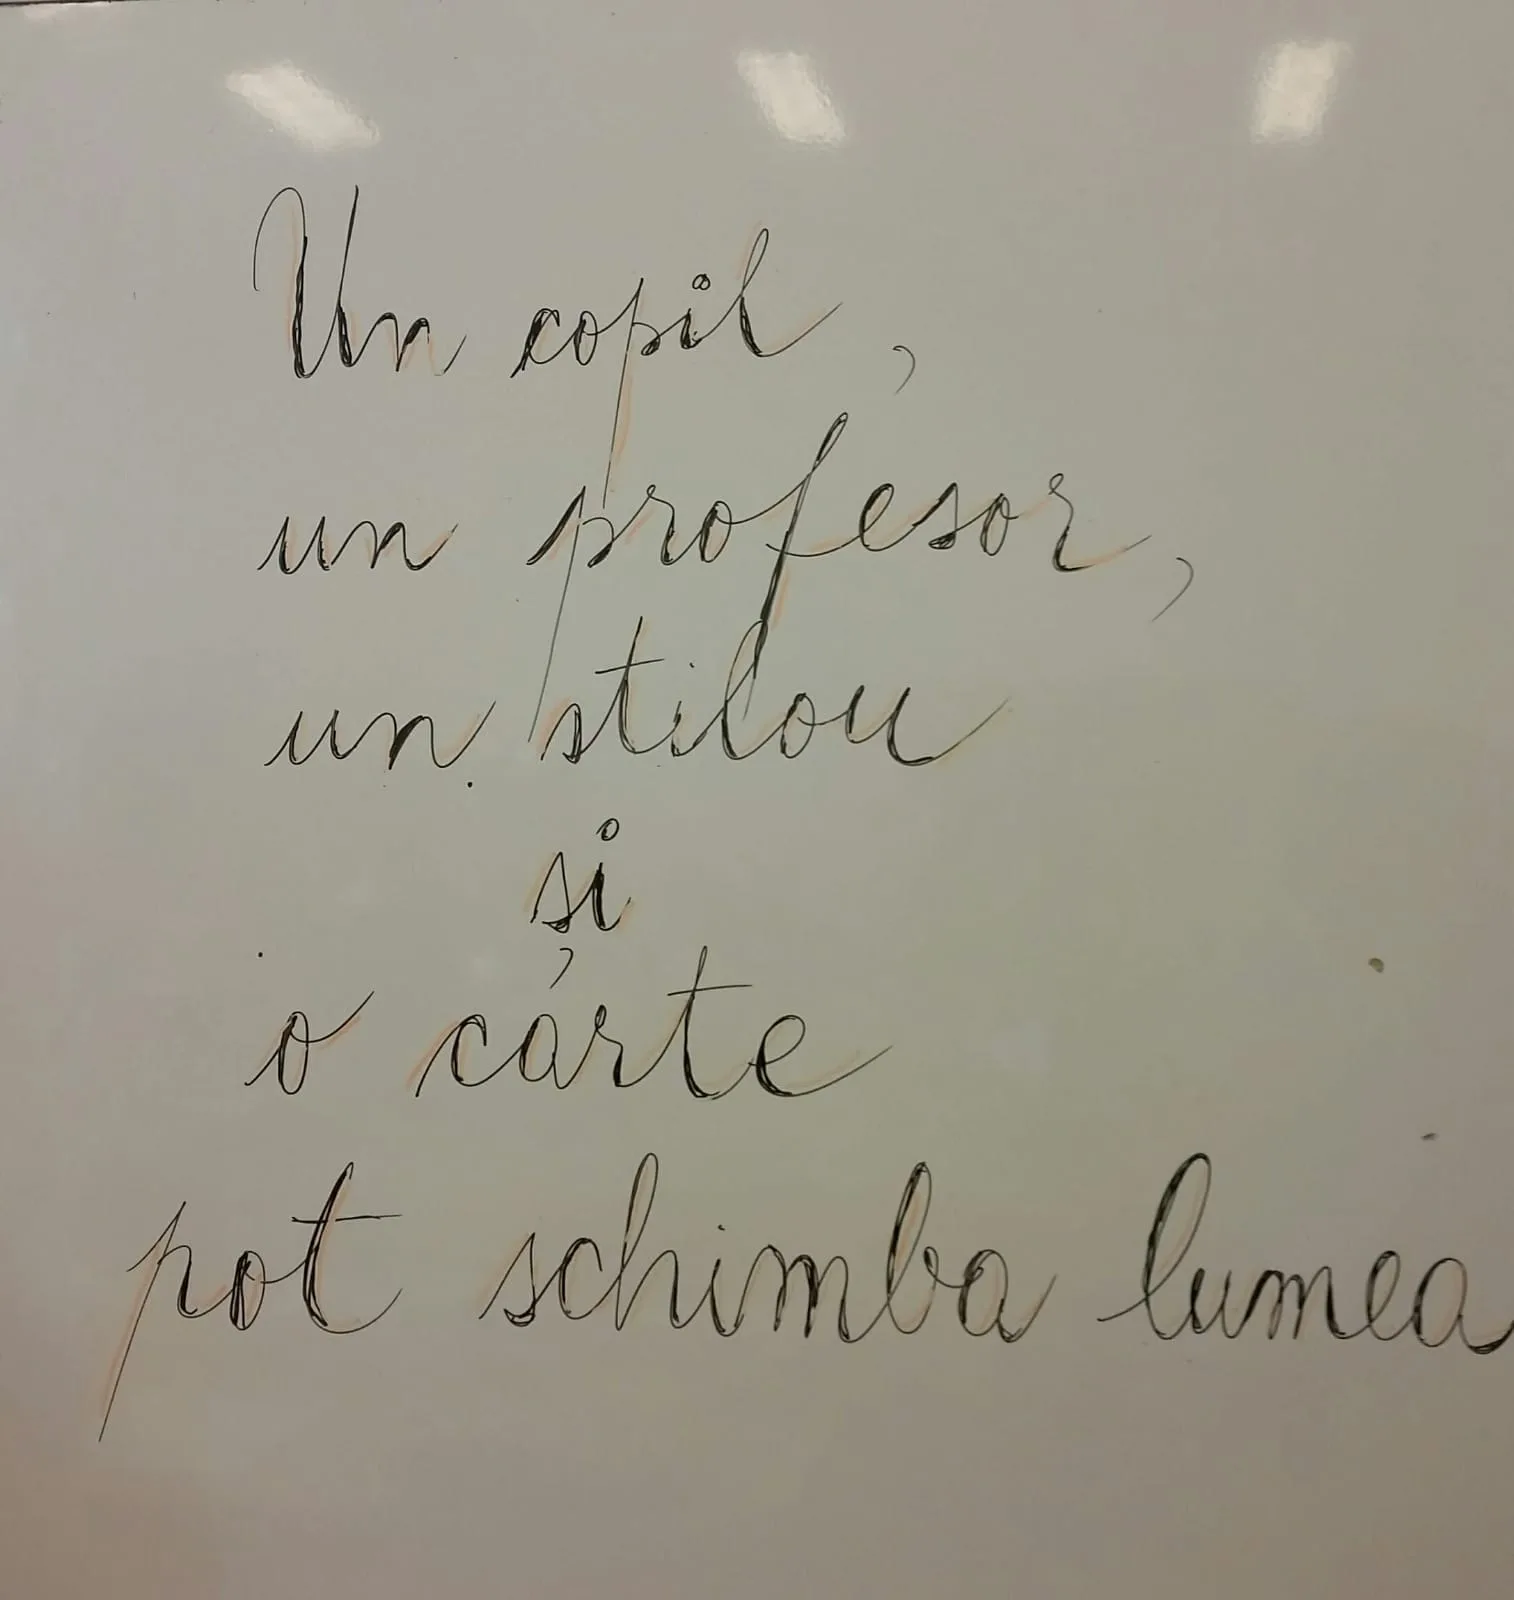 Un copil,
un profesor,
un stilou
și
o carte
pot schimba lumea